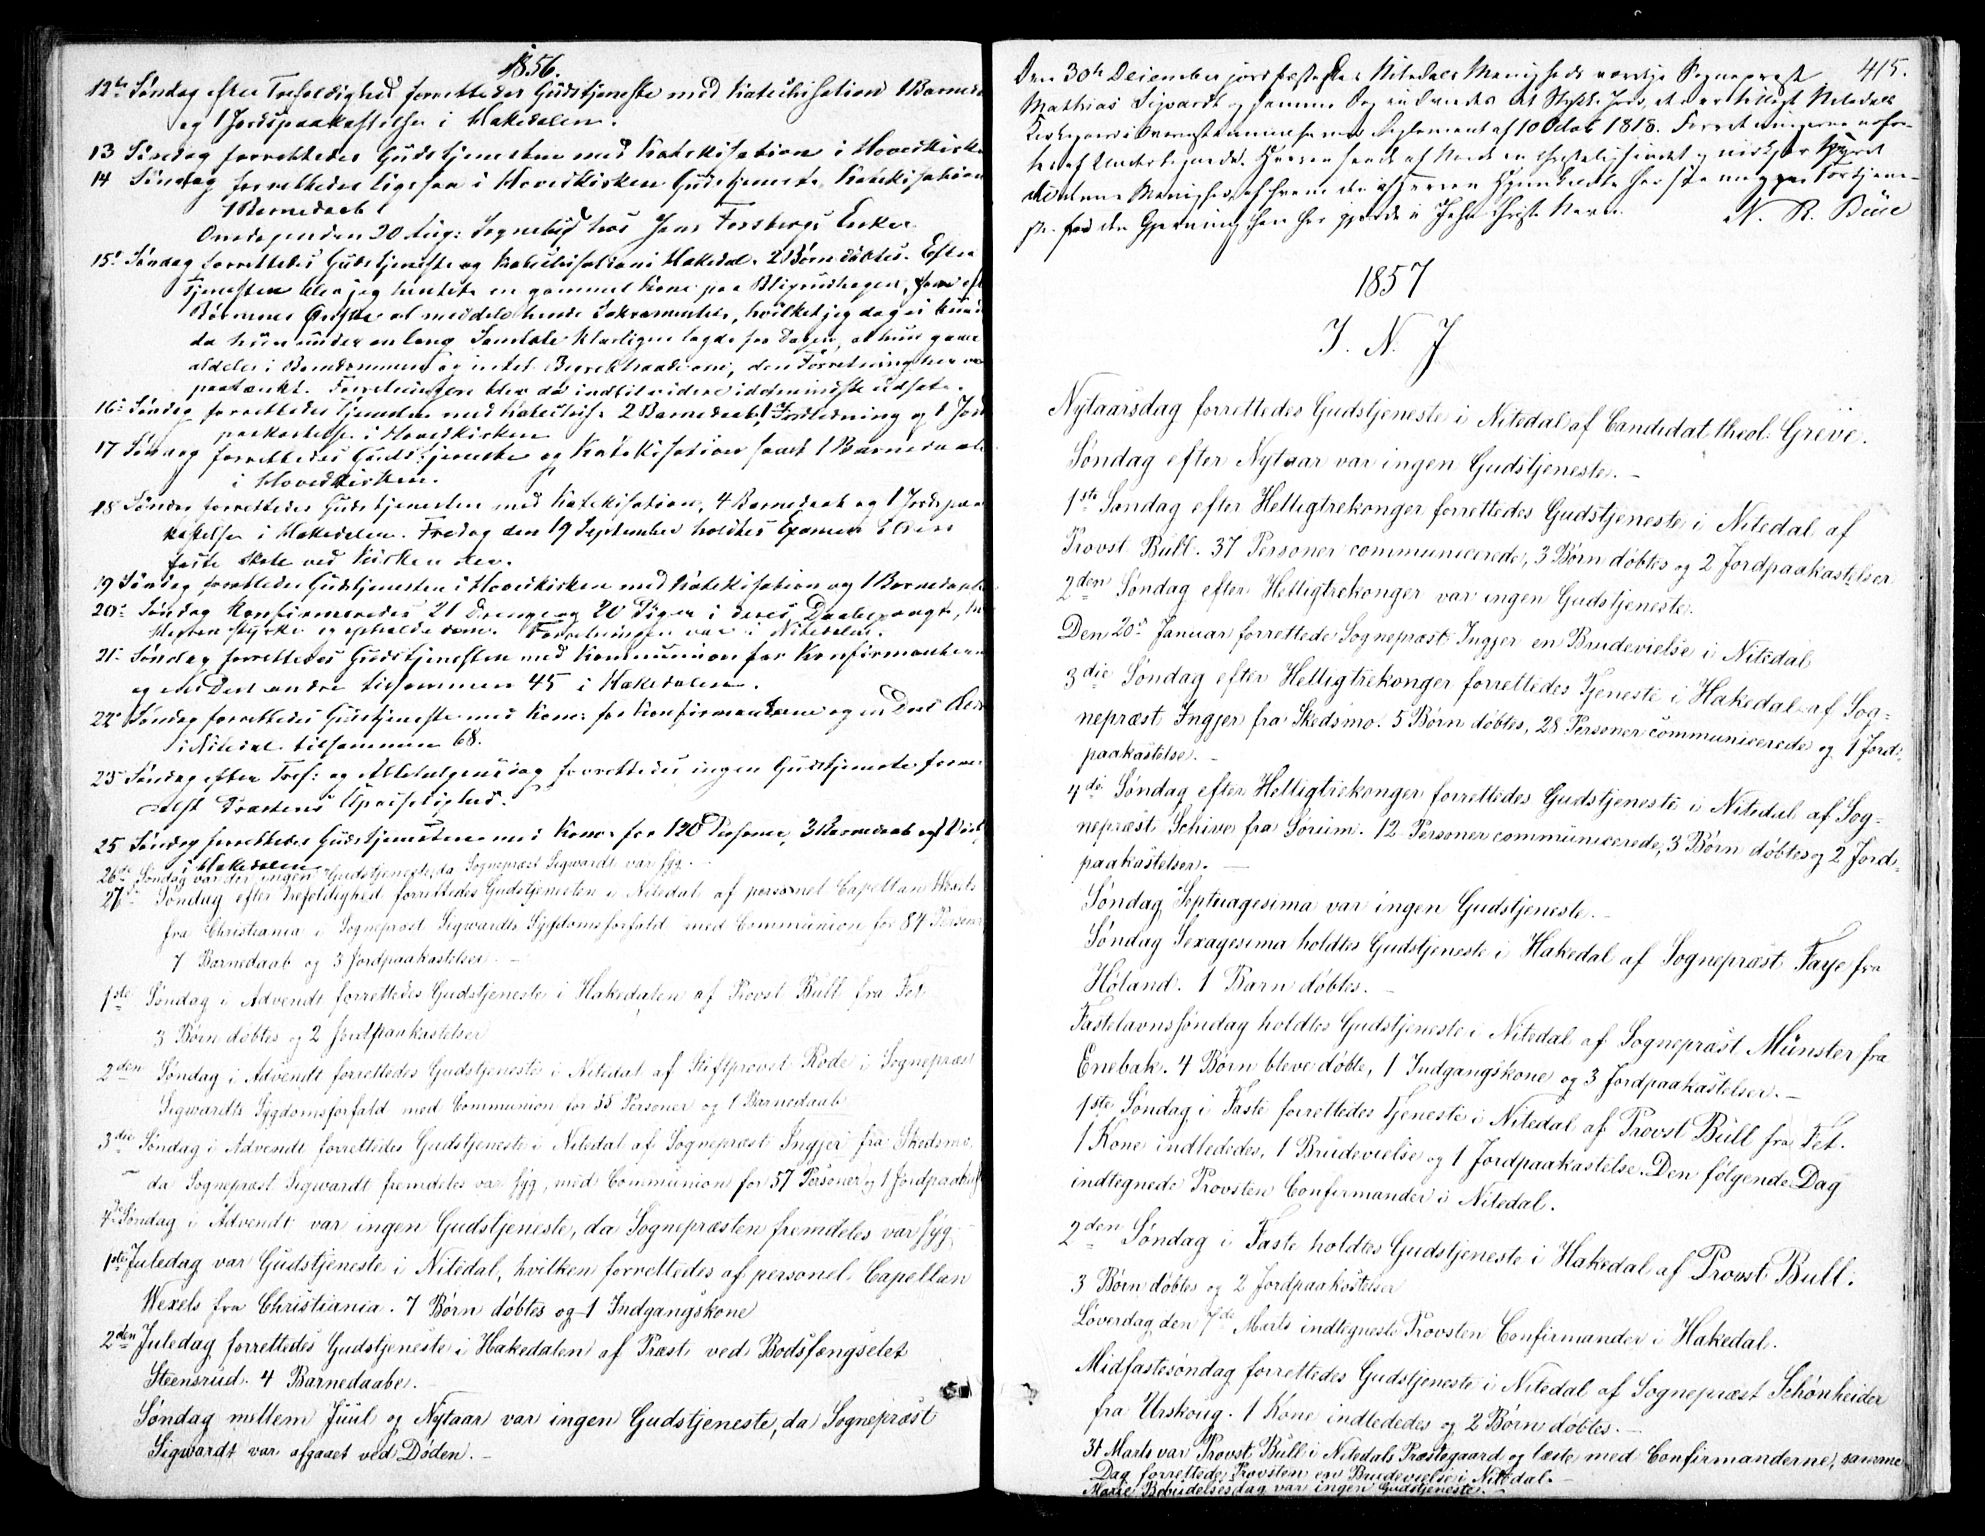 1856.
12te Søndag efter Trefoldighed forrettedes Gudstjeneste med Katechisation 1 Barnedaab
og 1 Jordspaakastelse i Hakedalen.
13 Søndag forrettedes Gudstjenesten med Katekisation i Hovedkirken
14 Søndag forrettedes ligesaa i Hovedkirken Gudstjeneste, Katekisation
1 Barnedaab.
Onsdagen den 20 Aug: Sognebud hos Jens Forsbergs Enke.
15de Søndag forrettedes Gudstjeneste og Katechisation i Hakedal. 2 Børn døbtes. Efter
Tjenesten blev jeg hentet en gammel Kone paa
Børnenes Ønske at meddele hende Sakramentet, hvilket jeg dog ei kunde
da hun under en lang Samtale klarligen lagde for Dagen, at hun
aldeles i Barndommen og intet Begreb havde om, den Forretning her var
paatænkt. Forretningen blev da indtil videre i det mindste udsat.
16de Søndag forrettedes Tjenesten med Katechis: 2 Barnedaab, 1 Indledning og 1 Jords
paakastelse i Hovedkirken
17 Søndag forrettedes Gudstjeneste og Katekisation samt 1 Barnedaab
i Hovedkirken.
18 Søndag forrettedes Gudstjenesten med Katekisation, 4 Barnedaab og 1 Jordspaa
kastelse i Hakedalen. Fredag den 19 September holdtes Examen i den
faste Skole ved Kirken der.
19 Søndag forrettedes Gudstjenesten i Hovedkirken med Katekisation og 1 Barnedaab
20de Søndag Konfirmeredes 21 Drenge og 20 Piger i deres Daabspagt,
Herren styrke og opholde dem. Forretningen var i Nitedalen.
21de Søndag forrettedes Gudstjenesten med Kommunion for Konfirmanterne
og en Deel andre tilsammen 45 i Hakedalen.
22de Søndag forrettedes Gudstjeneste med Kom: for Konfirmanterne og en Deel Andre
i Nitedal tilsammen 68.
23 Søndag efter Tref: og Allehelgensdag forrettedes ingen Gudstjeneste formedelst
Præstens Upasselighed.
25 Søndag forrettedes Gudstjenesten med Kom: for 120 Personer, 3 Barnedaab og 1
i Hakedalen
26de Søndag var der ingen Gudstjeneste, da Sognepræst Sigwardt var syg.
27de Søndag efter Trefoldighed forrettedes Gudstjenesten i Nitedal af personel Capellan Wexels
fra Christiania i Sognepræst Sigwardts Sygdomsforfald med Communion for 84 Personer
7 Barnedaab og 3 Jordpaakastelser. —
1ste Søndag i Advendt forrettedes Gudstjeneste i Hakedalen af Provst Bull fra Fet.
3 Børn døbtes og 2 Jordpaakastelser
2den Søndag i Advendt forrettedes Gudstjeneste i Nitedal af Stiftprovst Rode i Sognepræst
Sigwardts Sygdomsforfald med Communion for 55 Personer og 1 Barnedaab
3die Søndag i Advendt forrettedes Gudstjeneste i Nitedal af Sognepræst Ingjer fra Skedsmo,
da Sognepræst Sigwardt fremdeles var syg, med Communion for 57 Personer og 1 Jordpaakast
4de Søndag i Advendt var ingen Gudstjeneste, da Sognepræsten fremdeles var syg.
1ste Juledag var Gudstjeneste i Nitedal, hvilken forrettedes af personel Capellan
Wexels fra Christiania. 7 Børn døbtes og 1 Indgangskone
2den Juledag forrettedes Gudstjeneste i Hakedalen af Præst ved Bodsfængselet
Steensrud. 4 Barnedaabe.
Søndag mellem Juul og Nytaar var ingen Gudstjeneste, da Sognepræst
Sigwardt var afgaaet ved Døden. —
415.
Den 30te December jordfæstedes Nitedals Menigheds værdige Sognepræst
Mathias Sigvardt og samme Dag indviedes det Stykke Jord, der er tillagt Nitedals
Kirkegaard i Overensstemmelse med Reglement af 10 Octob 1818. Forretningerne
af Undertegnede. Herren sende af Naade en christeligsindet og nidkjær Hyrde
denne Menighed, af hvem den afgangne
for den Gjerning han her gjorde i Jesu Christi Navn. N. R. Bull
1857
I. N. J
Nytaarsdag forrettedes Gudstjeneste i Nitedal af Candidat theol: Greve.
Søndag efter Nytaar var ingen Gudstjeneste. —
1ste Søndag efter Helligtrekonger forrettedes Gudstjeneste i Nitedal af
Provst Bull. 37 Personer communicerede, 3 Børn døbtes og 2 Jordpaakastelser
2den Søndag efter Helligtrekonger var ingen Gudstjeneste.
Den 20de Januar forrettede Sognepræst Ingjer en Brudevielse i Nitedal
3die Søndag efter Helligtrekonger forrettedes Tjeneste i Hakedal af Sog-
nepræst Ingjer fra Skedsmo. 5 Børn døbtes, 28 Personer communicerede og 1 Jord-
paakastelse. —
4de Søndag efter Helligtrekonger forrettedes Gudstjeneste i Nitedal af Sog-
nepræst Schive fra Sørum. 12 Personer communicerede, 3 Børn døbtes og 2 Jord-
paakastelser. —
Søndag Septuagesima var ingen Gudstjeneste. —
Søndag Sexagesima holdtes Gudstjeneste i Hakedal af Sognepræst Faye fra
Høland. 1 Barn døbtes. —
Fastelavnssøndag holdtes Gudstjeneste i Nitedal af Sognepræst Münster fra
Enebak. 4 Børn bleve døbte, 1 Indgangskone og 3 Jordpaakastelser. —
1ste Søndag i Faste forrettedes Tjeneste i Nitedal af Provst Bull fra Fet.
1 Kone indlededes, 1 Brudevielse og 1 Jordpaakastelse. Den følgende Dag
indtegnede Provsten Confirmander i Nitedal.
2den Søndag i Faste holdtes Gudstjeneste i Hakedal af Provst Bull.
3 Børn døbtes og 2 Jordpaakastelser
Løverdag den 7de Marts indtegnede Provsten Confirmander i Hakedal.
Midfastesøndag forrettedes Gudstjeneste i Nitedal af Sognepræst Schønheider
fra Urskoug. 1 Kone indlededes og 2 Børn døbtes. —
31 Marts var Provst Bull i Nitedals Præstegaard og læste med Confirmanderne, samme
Dag forrettede Provsten en Brudevielse i Nitedal. —
Mariæ Bebudelsesdag var ingen Gudstjeneste. —